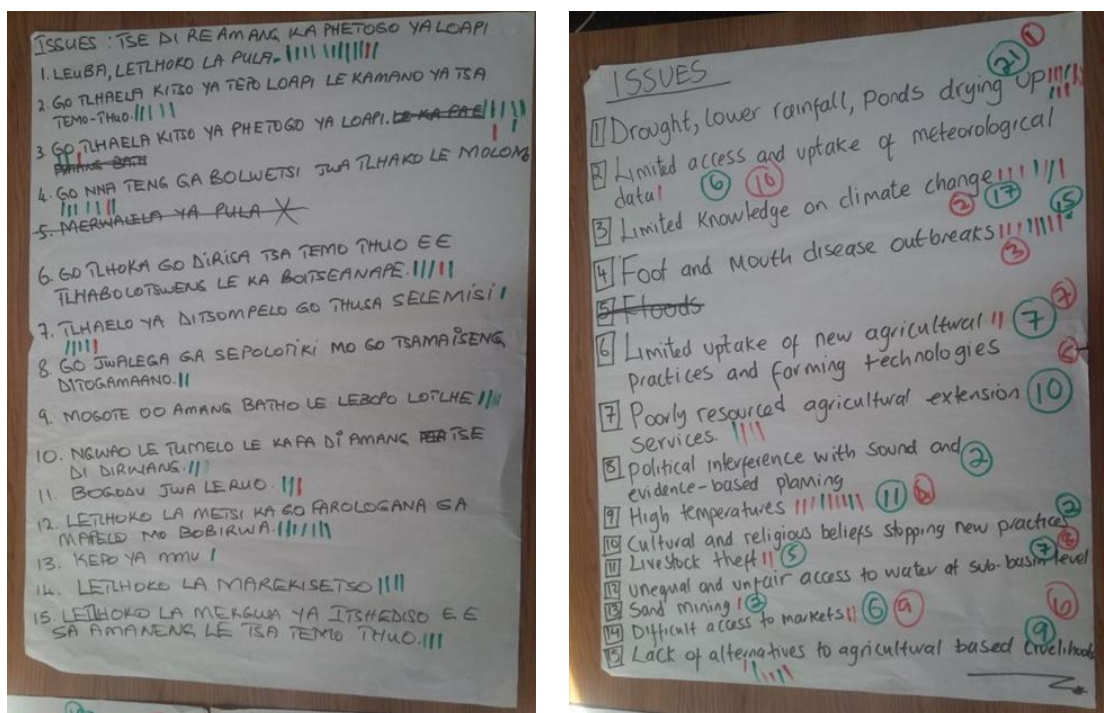 ISSUES : TSE DI RE AMANG KA PHETOGO YA LOAPI
1. LEUBA, LETLHOKO LA PULA.
2. GO TLHAELA KITSO YA TEPO LOAPI LE KAMANO YA TSA
TEMO-THUO.
3. GO TLHAELA KITSO YA PHETOGO YA LOAPI. LE KA FAE
BATH
4. GO NNA TENG GA BOLWETSI JWA TLHAKO LE MOLOMO
5. MERWALELA YA PULA X
6. GO TLHOKA GO DIRISA TSA TEMO THUO E E
TLHABOLOTSWENG LE KA BOITSEANAPE.
7. TLHAELO YA DITSOMPELO GO THUSA SELEMISI
8 GO JWALEGA GA SEPOLOTIKI MO GO TSAMAISENG
DITOGAMAANO.
9. MOGOTE OO AMANG BATHO LE LEBOPO LOTLHE
10. NGWAO LE TUMELO LE KAFA DI AMANG TSE
DI DIRWANG.
11. BOGODU JWA LERUO.
12. LETLHOKO LA METSI KA GO FAROLOGANA GA
MAFELO MO BOBIRWA.
13. KEPO YA MMU
14. LETLHOKO LA MAREKISETSO
15. LETLHOKO LA MEKGWA YA ITSHEDISO E E
SA AMANENG LE TSA TEMO THUO.
ISSUES 21 1
1 Drought, lower rainfall, Ponds drying up
2 Limited access and uptake of meteorological
data 6 10
3 Limited knowledge on climate change
2 17 15
4 Foot and Mouth disease outbreaks
3
5 Floods
6 Limited uptake of new agricultural 7 7
practices and farming technologies
7 Poorly resourced agricultural extension 10
services.
8 political interference with sound and 2
evidence-based planning
9 High temperatures 11
10 Cultural and religious beliefs stopping new practices 2
11 Livestock theft 5 7 8
12 unequal and unfair access to water at sub-basin level
13 Sand mining 2
14 Difficult access to markets 6 9 10
9
15 Lack of alternatives to agricultural based livelihoods